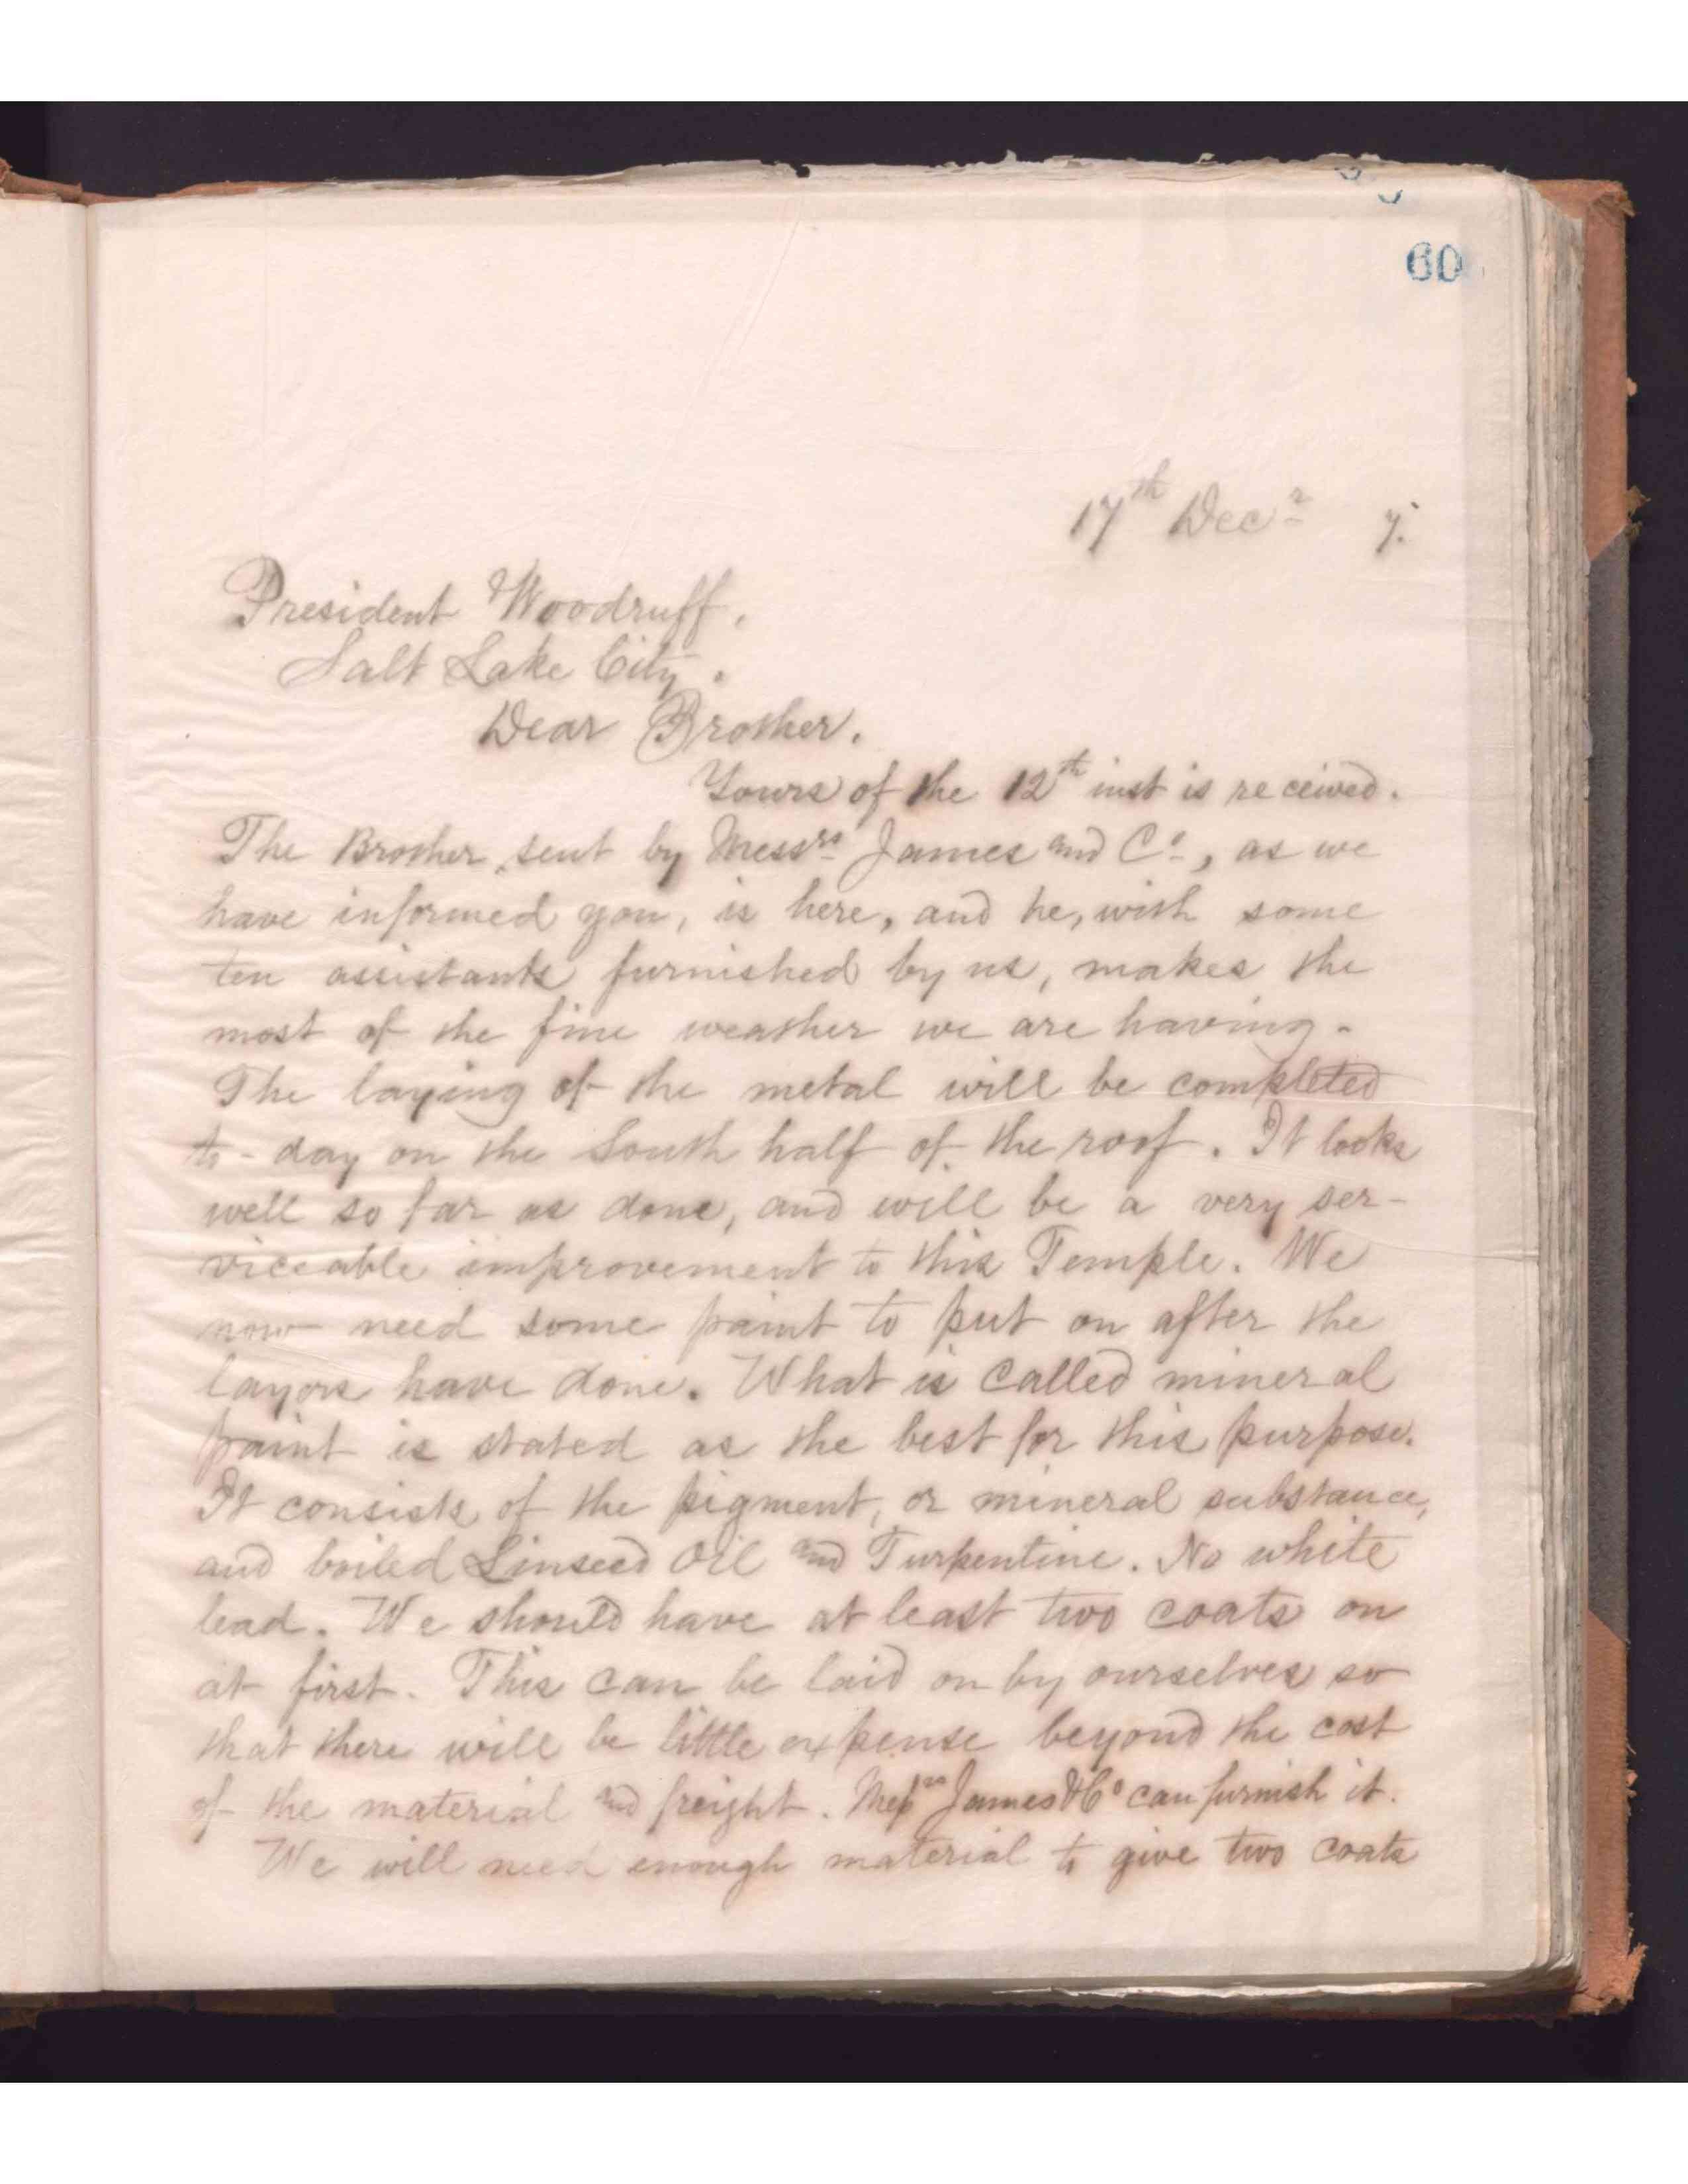 60
17th Decr 7.
President Woodruff.
Salt Lake City.
Dear Brother.
Yours of the 12th inst is received.
The Brother, sent by Messrs James and Co, as we
have informed you, is here, and he, with some
ten assistants furnished by us, makes the
most of the fine weather we are having.
The laying of the metal will be completed
to-day on the South half of the roof. It looks
well so far as done, and will be a very ser-
viceable improvement to this Temple. We
now need some paint to put on after the
layors have done. What is called mineral
paint is stated as the best for this purpose.
It consists of the pigment, or mineral substance,
and boiled Linseed Oil and Turpentine. No white
lead. We should have at least two coats on
at first. This can be laid on by ourselves so
that there will be little expense beyond the cost
of the material and freight. Messrs James & Co can furnish it.
We will need enough material to give two coats